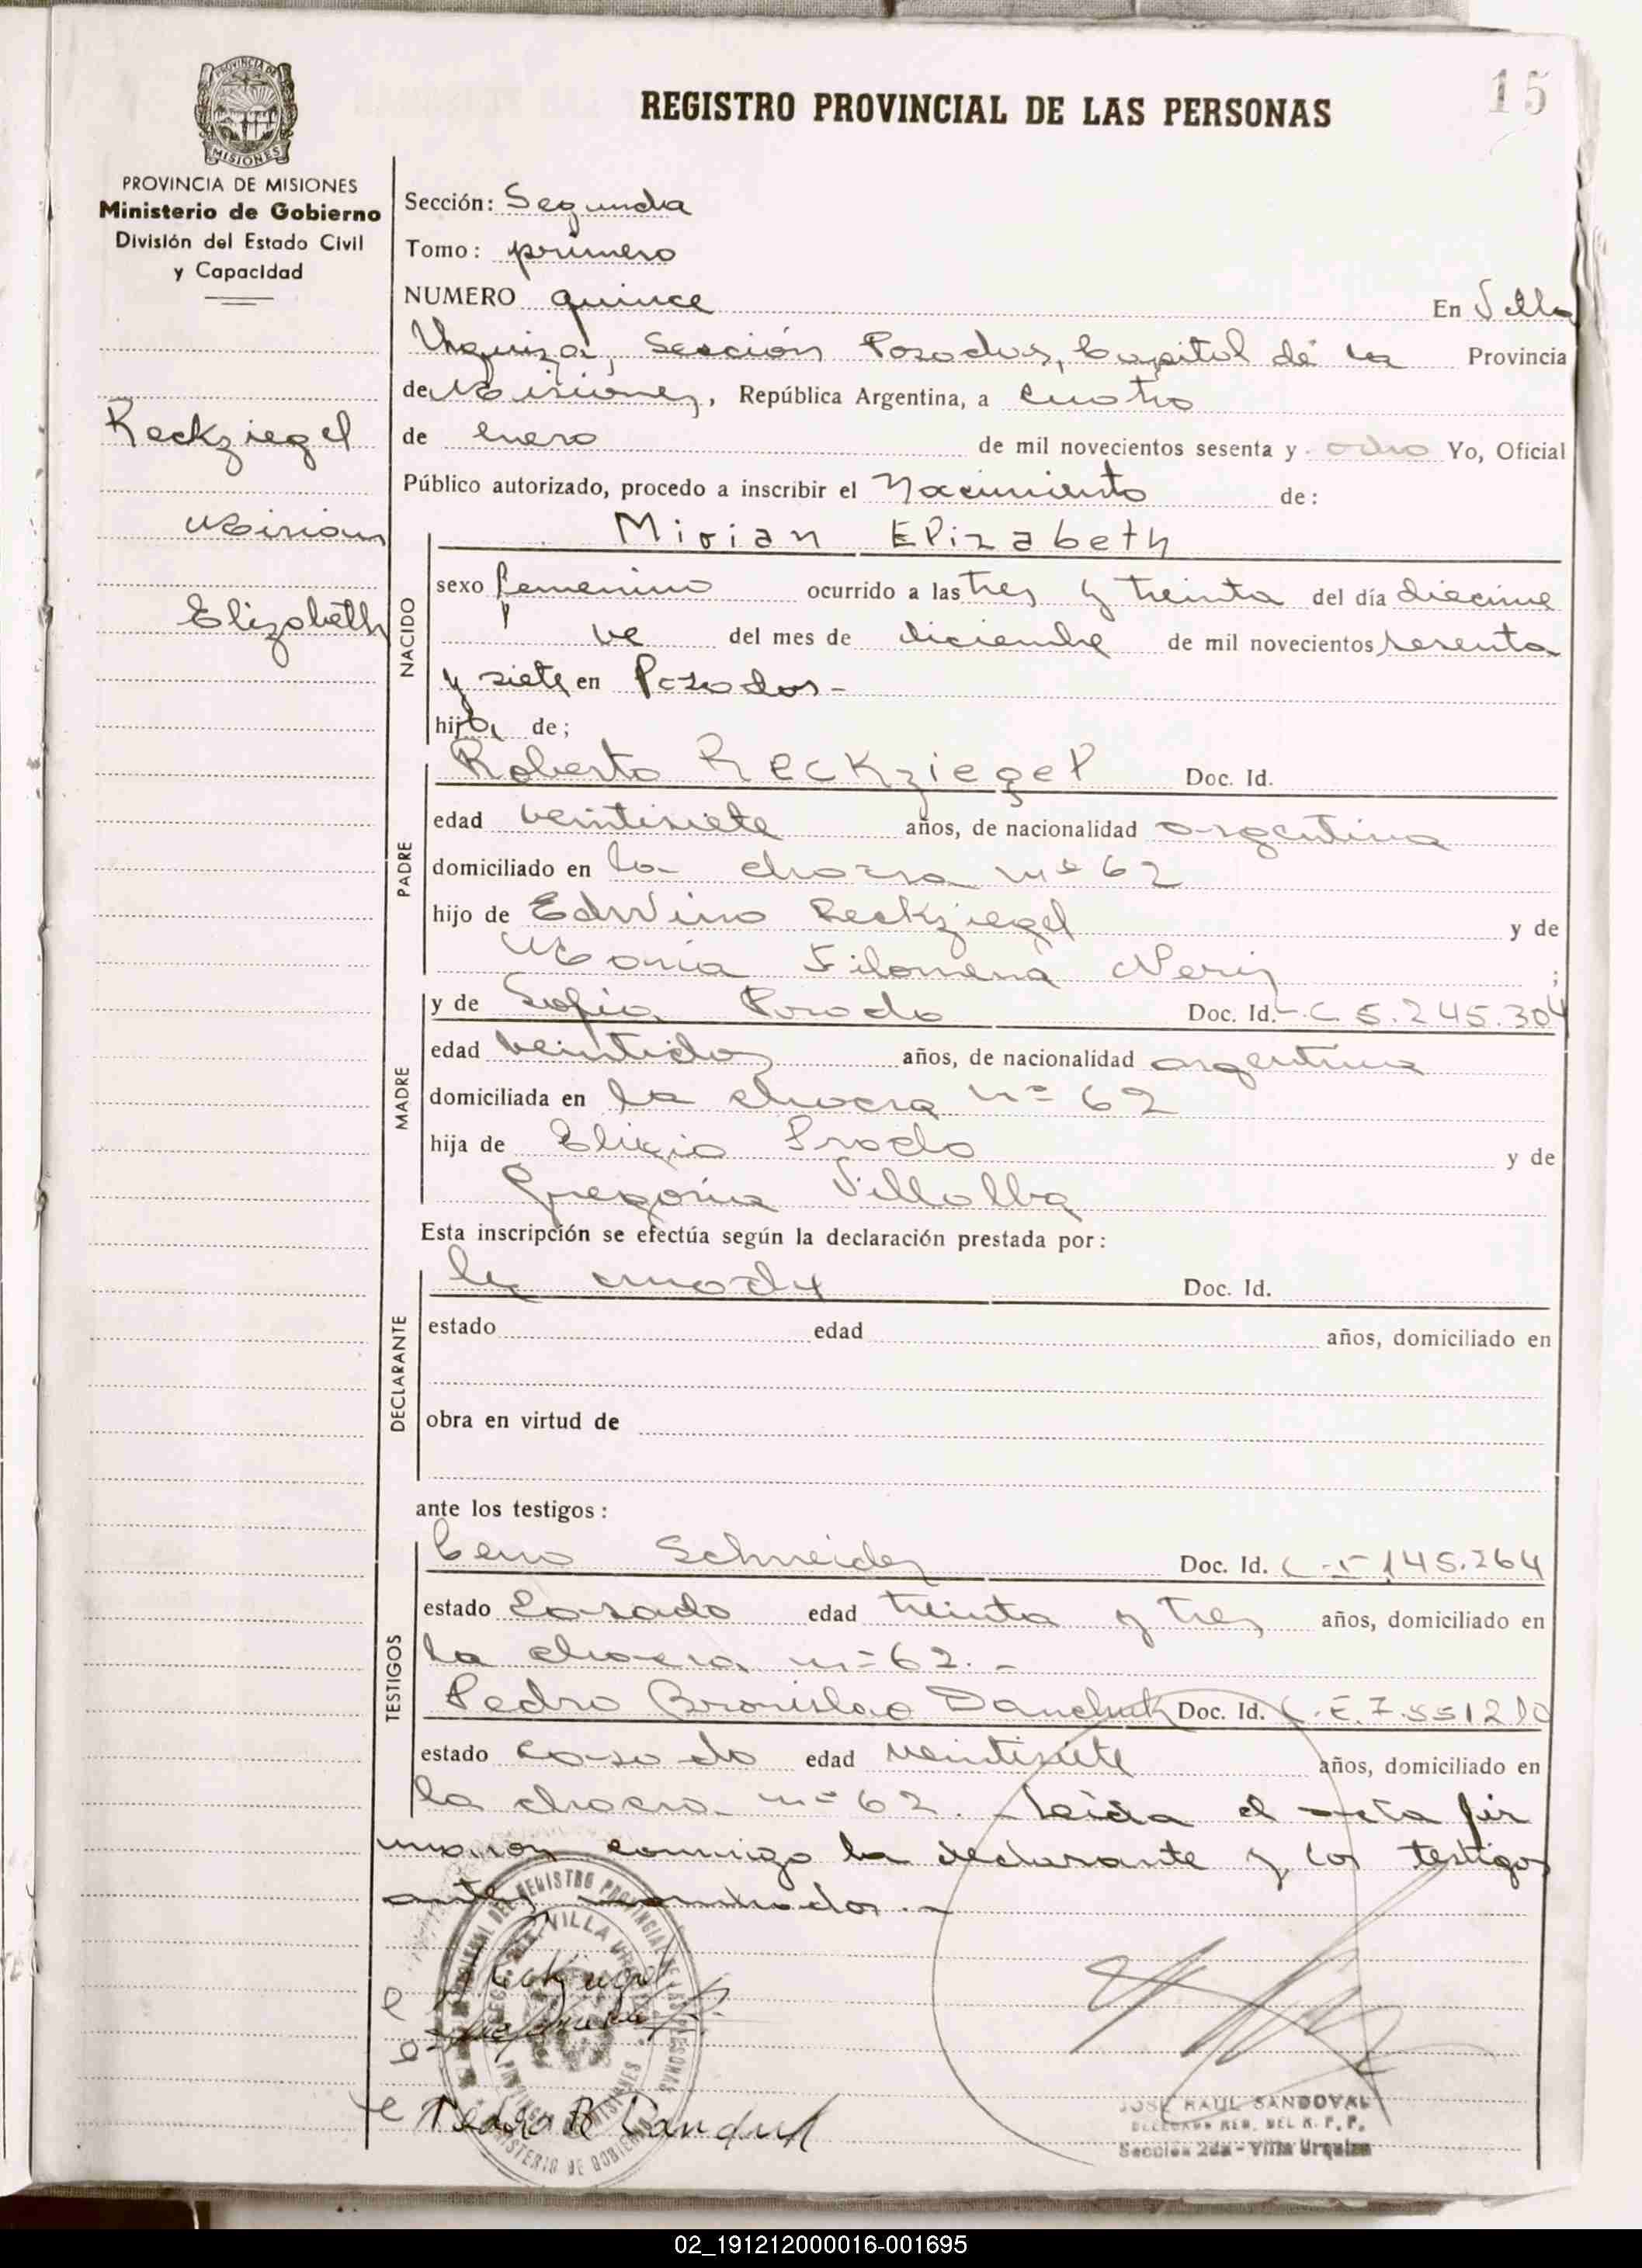 15
REGISTRO PROVINCIAL DE LAS PERSONAS
PROVINCIA DE
MISIONES
PROVINCIA DE MISIONES
Ministerio de Gobierno
División del Estado Civil
y Capacidad
Reckziegel
Mirian
Elizabeth
Sección: Segunda
Tomo: primero
NUMERO quince En Villa
Urquiza, Sección Posadas, Capital de la Provincia
de Misiones, República Argentina, a cuatro
de enero de mil novecientos sesenta y ocho Yo, Oficial
Público autorizado, procedo a inscribir el Nacimiento de:
NACIDO
Mirian Elizabeth
sexo femenino ocurrido a las tres y treinta del día diecinue
ve del mes de diciembre de mil novecientos sesenta
y siete en Posadas-
hija de;
PADRE
Roberto Reckziegel Doc. Id.
edad veintisiete años, de nacionalidad argentina
domiciliado en la chacra nº 62
hijo de Edwino Reckziegel y de
María Filomena Neriz;
MADRE
y de Sofia Prado Doc. Id.- C 5.245.304
edad veintidos años, de nacionalidad argentina
domiciliada en la chacra nº 62
hija de Elixio Prado y de
Gregoria Villalba
Esta inscripción se efectúa según la declaración prestada por:
DECLARANTE
la madre Doc. Id.
estado edad años, domiciliado en
obra en virtud de
ante los testigos:
TESTIGOS
Schneider Doc. Id. 145.264
estado Casado edad treinta y tres años, domiciliado en
la chacra nº 62.-
Pedro Bronislao Danchuk Doc. Id. C.E.7.551210
estado casado edad veintisiete años, domiciliado en
la chacra nº 62. Leida el acta fir
maron conmigo la declarante y los testigos
antes nombrados.-
REGISTRO PROVINCIAL DE LAS PERSONAS
VILLA URQUIZA
MINISTERIO DE GOBIERNO
Reckziegel
Pedro B Danchuk
JOSE RAUL SANDOVAL
DELEGADO REG. DEL R. P. P.
Sección 2da - Villa Urquiza
02_191212000016-001695